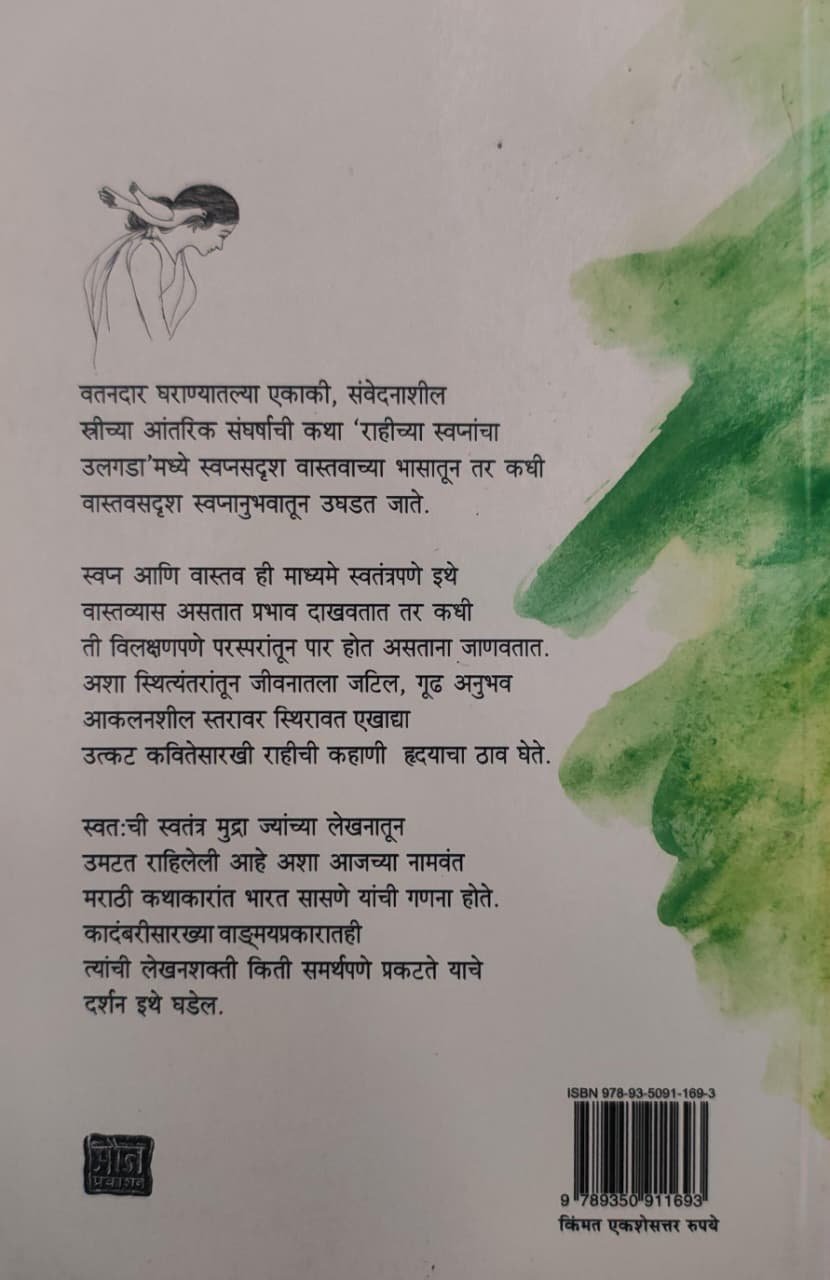 वतनदार घराण्यातल्या एकाकी, संवेदनाशील
स्त्रीच्या आंतरिक संघर्षाची कथा ‘राहीच्या स्वप्नांचा
उलगडा’मध्ये स्वप्नसदृश वास्तवाच्या भासातून तर कधी
वास्तवसदृश स्वप्नानुभवातून उघडत जाते.
स्वप्न आणि वास्तव ही माध्यमे स्वतंत्रपणे इथे
वास्तव्यास असतात प्रभाव दाखवतात तर कधी
ती विलक्षणपणे परस्परांतून पार होत असताना जाणवतात.
अशा स्थित्यंतरांतून जीवनातला जटिल, गूढ अनुभव
आकलनशील स्तरावर स्थिरावत एखाद्या
उत्कट कवितेसारखी राहीची कहाणी हृदयाचा ठाव घेते.
स्वतःची स्वतंत्र मुद्रा ज्यांच्या लेखनातून
उमटत राहिलेली आहे अशा आजच्या नामवंत
मराठी कथाकारांत भारत सासणे यांची गणना होते.
कादंबरीसारख्या वाङ्‌मयप्रकारातही
त्यांची लेखनशक्ती किती समर्थपणे प्रकटते याचे
दर्शन इथे घडेल.
मौज
प्रकाशन
ISBN 978-93-5091-169-3
9 789350 911693
किंमत एकशेसत्तर रुपये